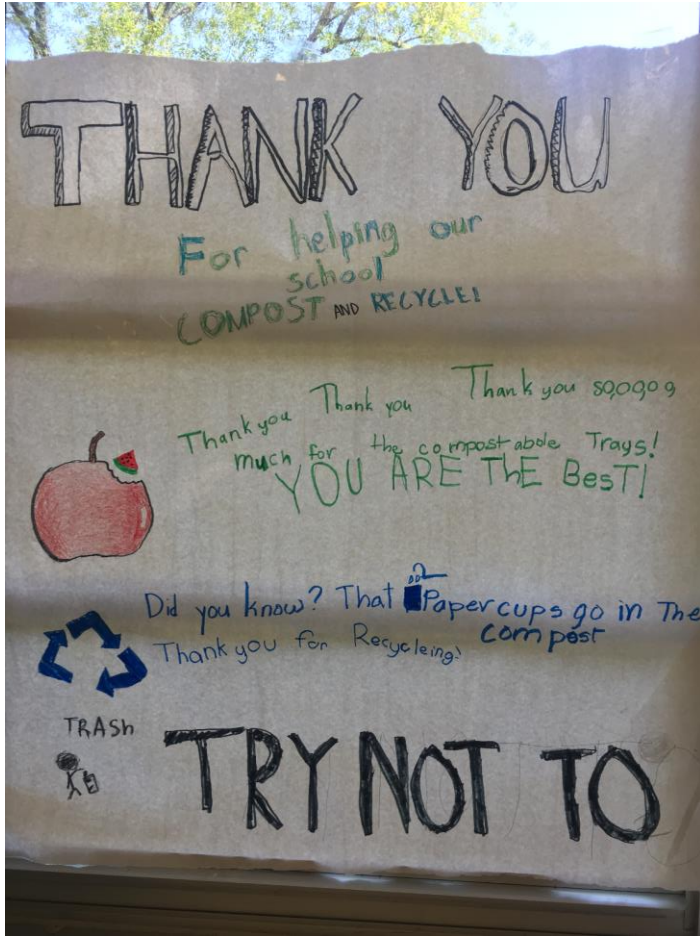 THANK YOU
For helping our
school
COMPOST AND RECYCLE!
Thank you Thank you Thank you sooooo
much for the compostabole Trays!
YOU ARE THE BesT!
Did you know? That Paper cups go in The
compost
Thank you for Recycleing!
TRASh
TRY NOT TO